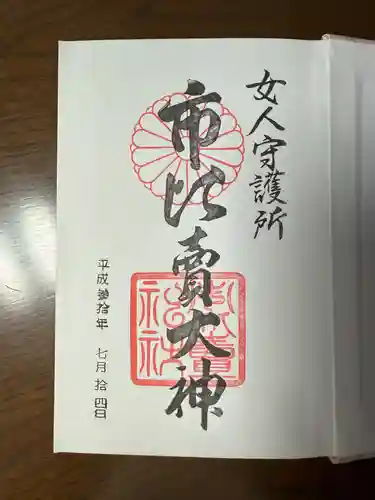 女人守護所
市比賣大神
平成参拾年 七月拾四日